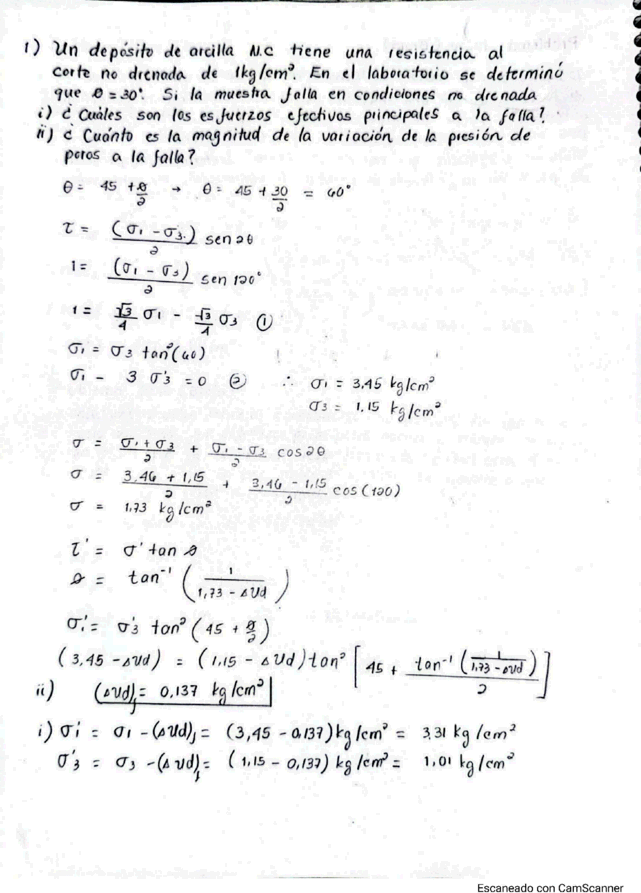 1) Un depósito de arcilla N.C tiene una resistencia al
corte no drenada de 1kg/cm². En el laboratorio se determinó
que ø = 30°. Si la muestra falla en condiciones no drenada
i) ¿ Cuáles son los esfuerzos efectivos principales a la falla?
ii) ¿ Cuánto es la magnitud de la variación de la presión de
poros a la falla?
θ = 45 + ø/2 → θ = 45 + 30/2 = 60°
τ = (σ1 - σ3)/2 sen 2θ
1 = (σ1 - σ3)/2 sen 120°
1 = √3/4 σ1 - √3/4 σ3 ①
σ1 = σ3 tan²(60)
σ1 - 3 σ'3 = 0 ② ∴ σ1 = 3,45 kg/cm²
σ3 = 1,15 kg/cm²
σ = σ1 + σ3/2 + σ1 - σ3/2 cos 2θ
σ = 3,46 + 1,15/2 + 3,46 - 1,15/2 cos (120)
σ = 1,73 kg/cm²
τ' = σ' tan ø
ø = tan⁻¹ (1/1,73 - ΔUd)
σ1' = σ'3 tan² (45 + ø/2)
(3,45 - ΔUd) = (1,15 - ΔUd) tan² [45 + tan⁻¹ (1/1,73 - ΔUd)/2]
ii) (ΔUd)f = 0,137 kg/cm²
i) σ1' = σ1 - (ΔUd)f = (3,45 - 0,137) kg/cm² = 3,31 kg/cm²
σ'3 = σ3 - (ΔUd)f = (1,15 - 0,137) kg/cm² = 1,01 kg/cm²
Escaneado con CamScanner